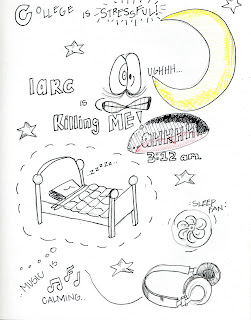 COLLEGE IS STRESSFUL!
UGHHH...
IARC
IS
Killing ME!
AHHHH
3:12 am
zzzzz...
:SLEEP
FAN:
MUSIC IS
CALMING..